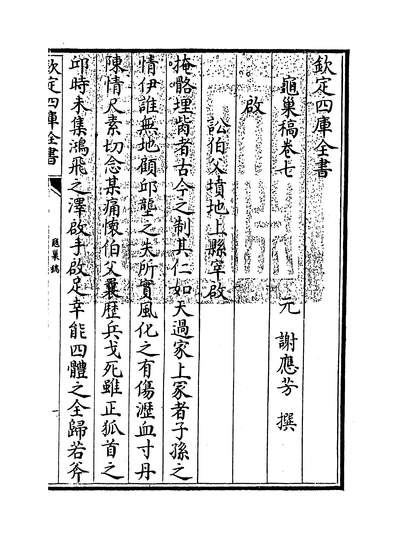 欽定四庫全書
龜巢稿卷七
元 謝應芳 撰
啟
訟伯父墳地上縣宰啟
掩骼埋胔者古今之制其仁如天過家上冢者子孫之
情伊誰無地顧邱壟之失所實風化之有傷瀝血寸丹
陳情尺素切念某痛懷伯父曩歴兵戈死雖正狐首之
邱時未集鴻飛之澤啟手啟足幸能四體之全歸若斧
欽定四庫全書
龜巢稿
一